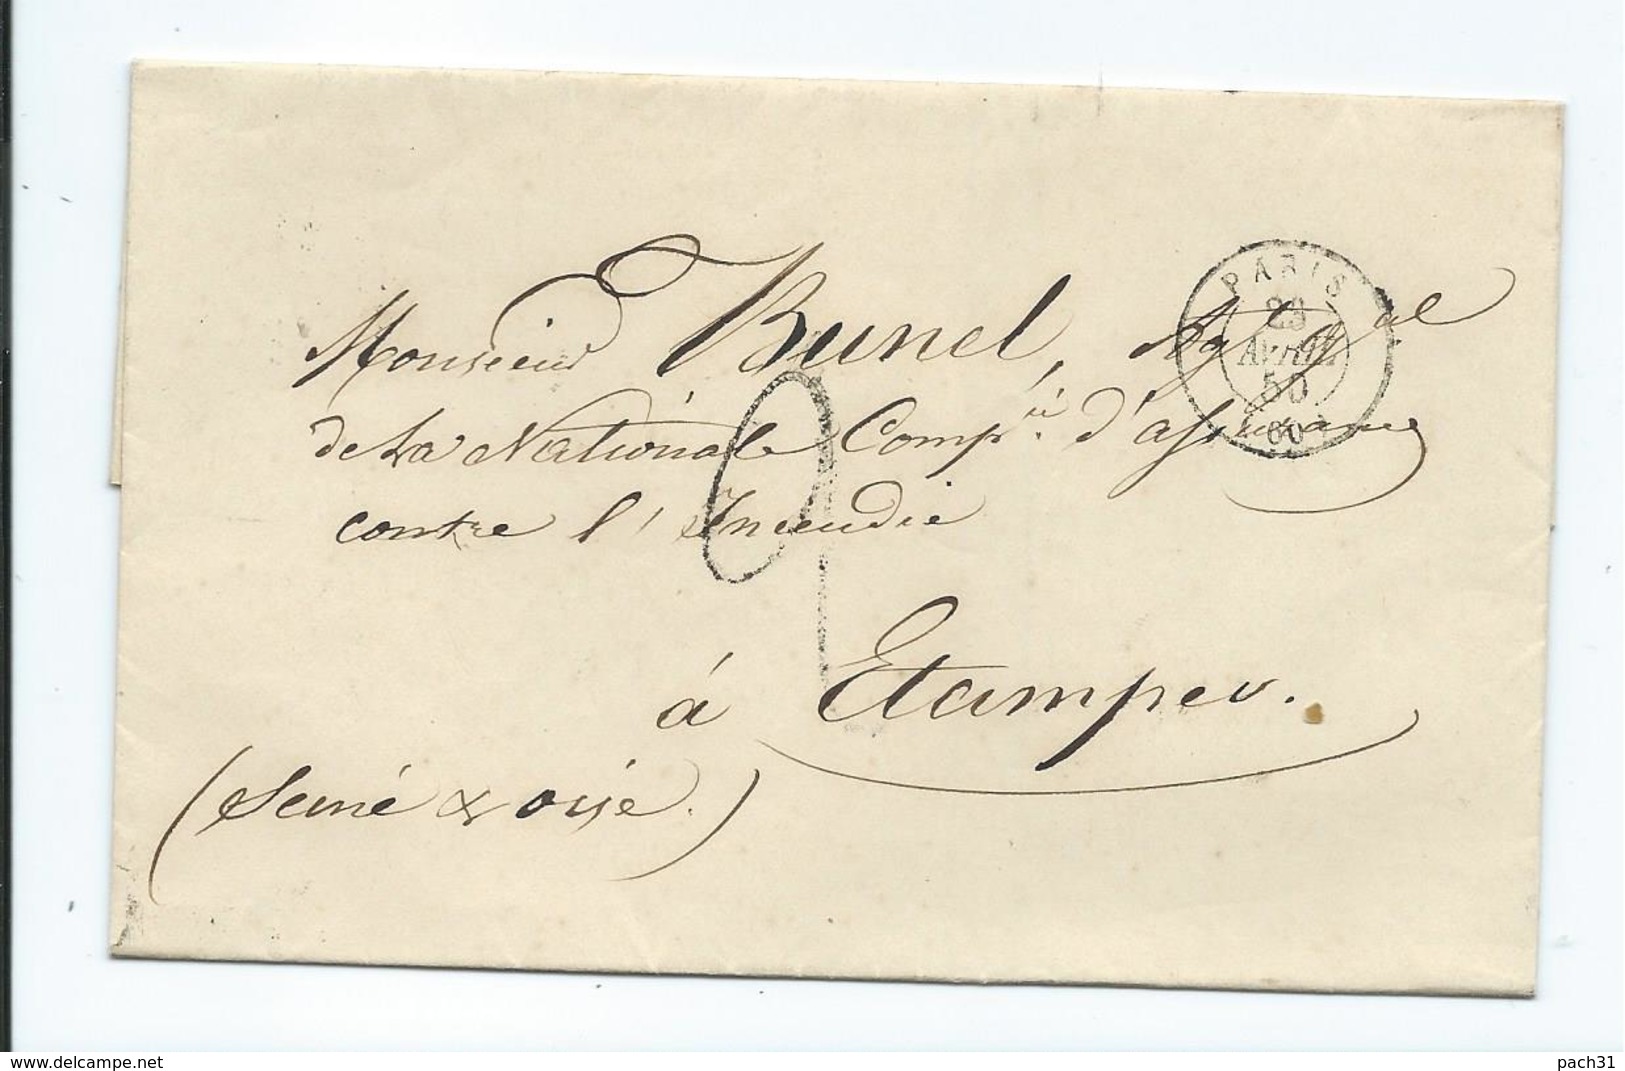 Monsieur Bunel, Ag. g.al
de La Nationale Comp.ie d'assurance
contre l'Incendie
à Etampes.
(Seine & oise.)
PARIS
23
AVRIL
50
(60)
2
delcampe.net
pach31